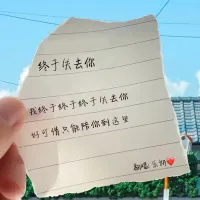 终于失去你
我终于终于终于失去你
好可惜只能陪你到这里
翻唱